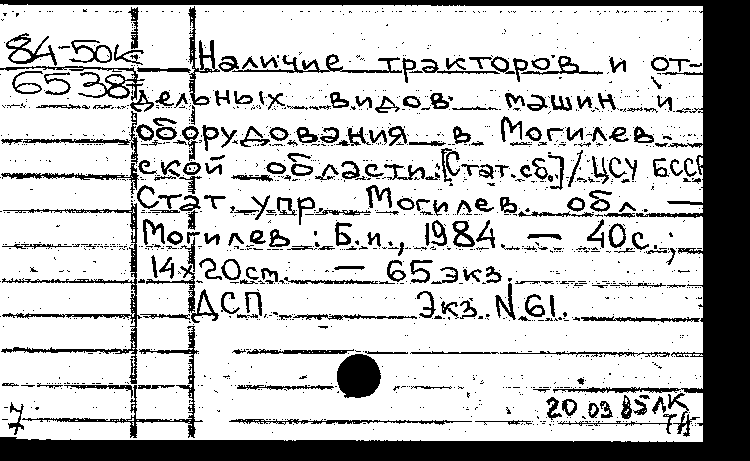 84-50к
6538
Наличие тракторов и от-
дельных видов машин и
оборудования в Могилев-
ской области: [Стат. сб.] / ЦСУ БССР
Стат. упр. Могилев. обл. —
Могилев : Б.и., 1984. — 40с.;
14×20cm. — 65 экз.
ДСП Экз. N 61.
20.03.85 ЛК
7